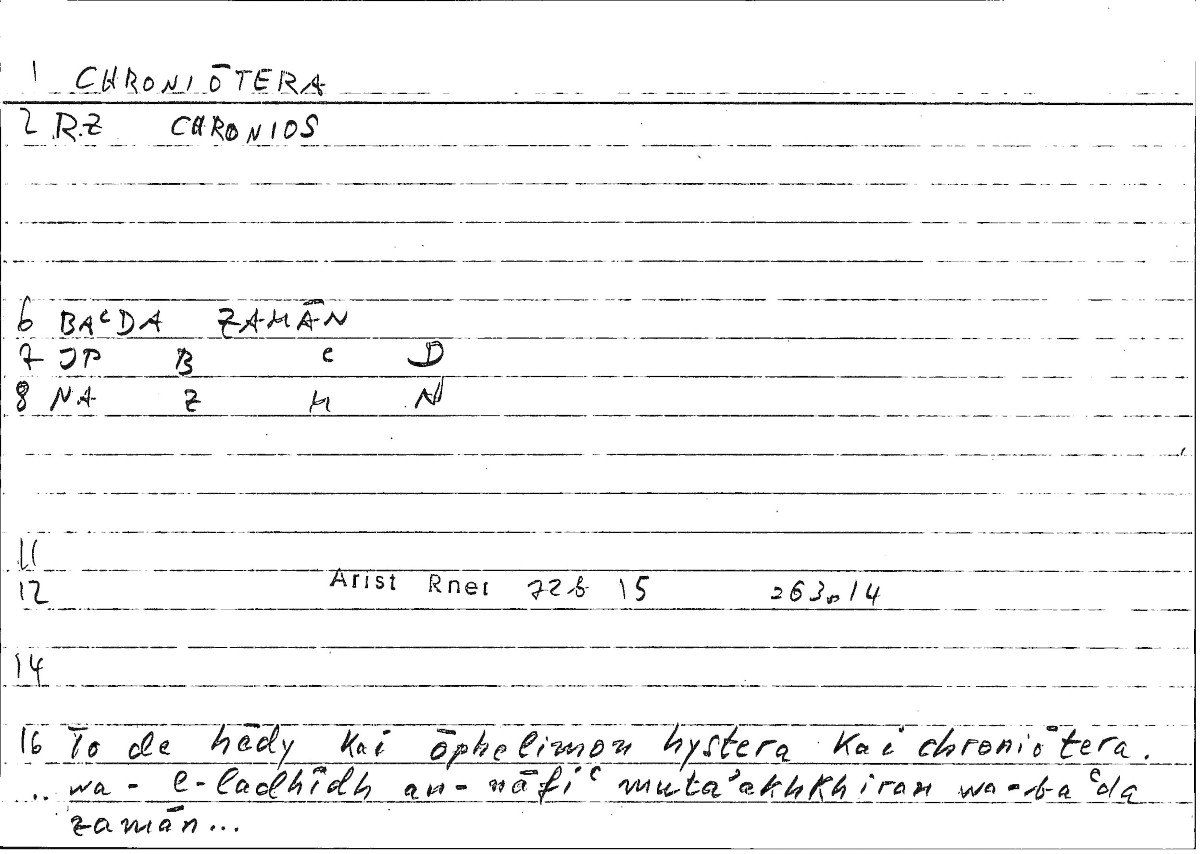 1 CHRONIŌTERA
2 RZ CHRONIOS
6 BAᶜDA ZAMĀN
7 JP B ᶜ D
8 NA Z M N
11
12 Arist Rhet 72b 15 263,14
14
16 To de hēdy kai ōphelimon hystera kai chroniōtera.
.. wa - l-ladhīdh an-nāfiᶜ mutaʾakhkhiran wa-baᶜda
zamān...